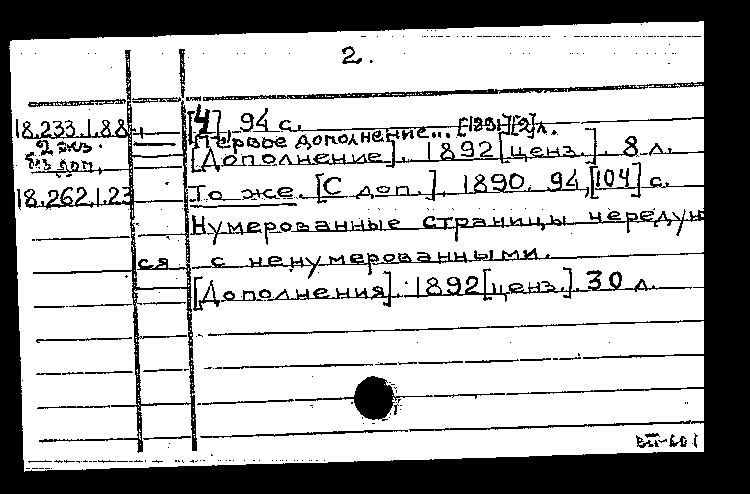 2.
18.233.1.88 [4], 94 с.
Первое дополнение... [1891] [2] л.
2 экз. [Дополнение]. 1892 [ценз.]. 8 л.
без доп.
18.262.1.23 То же. [С доп.]. 1890. 94, [104] с.
Нумерованные страницы чередую
ся с ненумерованными.
[Дополнения]. 1892 [ценз.]. 30 л.